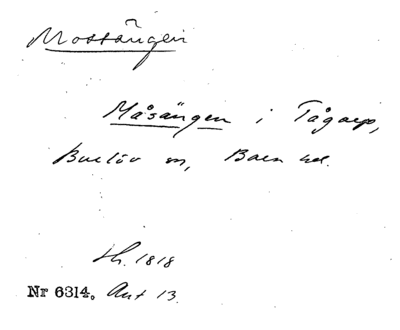 Mossängen
Måsängen i Tågarp,
Burlöv sn, Bara hd.
Sk. 1818
Nr 6314. Ant 13.